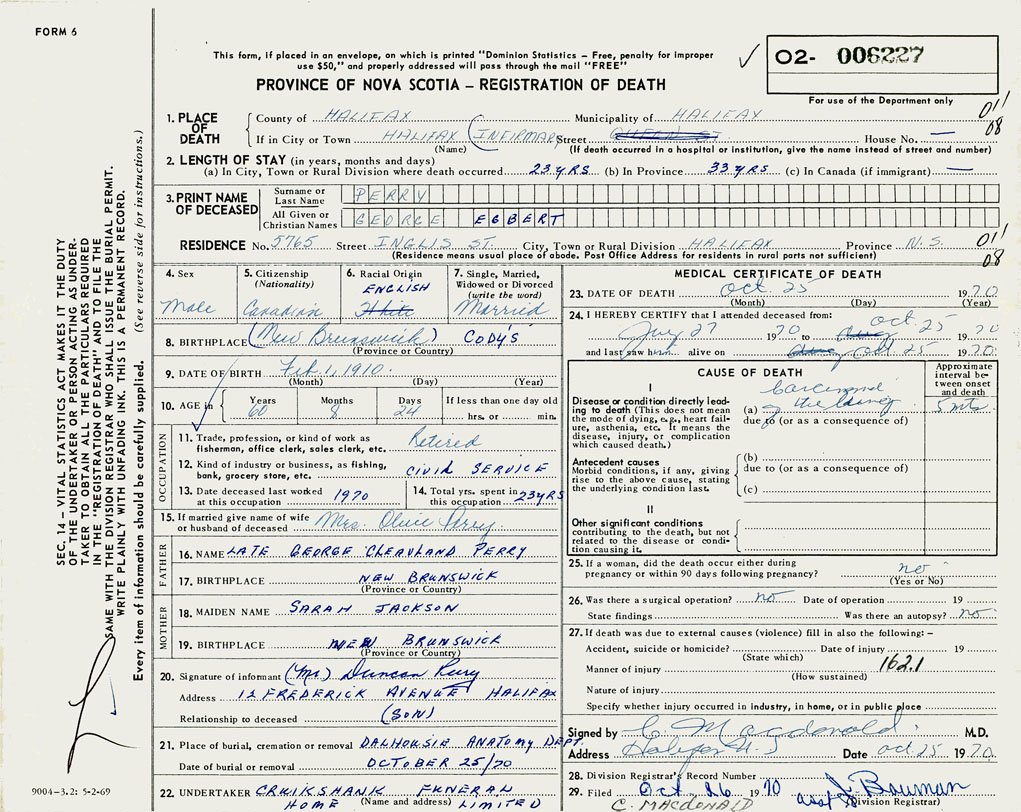 FORM 6
This form, if placed in an envelope, on which is printed "Dominion Statistics – Free, penalty for improper
use $50," and properly addressed will pass through the mail "FREE"
O2- 006227
PROVINCE OF NOVA SCOTIA – REGISTRATION OF DEATH
For use of the Department only
1. PLACE OF DEATH
County of HALIFAX Municipality of HALIFAX 011
If in City or Town HALIFAX (INFIRMARY Street QUEEN ST. House No. — 08
(Name) (If death occurred in a hospital or institution, give the name instead of street and number)
2. LENGTH OF STAY (in years, months and days)
(a) In City, Town or Rural Division where death occurred 23 YRS (b) In Province 33 YRS (c) In Canada (if immigrant) —
3. PRINT NAME OF DECEASED
Surname or Last Name PERRY
All Given or Christian Names GEORGE EGBERT
RESIDENCE No. 5765 Street INGLIS ST. City, Town or Rural Division HALIFAX Province N.S. 011
(Residence means usual place of abode. Post Office Address for residents in rural parts not sufficient) 08
4. Sex
Male
5. Citizenship
(Nationality)
Canadian
6. Racial Origin
ENGLISH
White
7. Single, Married,
Widowed or Divorced
(write the word)
Married
8. BIRTHPLACE (New Brunswick) CODY'S
(Province or Country)
9. DATE OF BIRTH Feb. 1, 1910.
(Month) (Day) (Year)
10. AGE in
Years Months Days If less than one day old
60 8 24 hrs. or min.
OCCUPATION
11. Trade, profession, or kind of work as
fisherman, office clerk, sales clerk, etc. Retired
12. Kind of industry or business, as fishing,
bank, grocery store, etc. CIVIL SERVICE
13. Date deceased last worked
at this occupation 1970
14. Total yrs. spent in
this occupation 23 YRS
15. If married give name of wife
or husband of deceased Mrs. Olive Perry
FATHER
16. NAME LATE GEORGE CLEAVLAND PERRY
17. BIRTHPLACE NEW BRUNSWICK
(Province or Country)
MOTHER
18. MAIDEN NAME SARAH JACKSON
19. BIRTHPLACE NEW BRUNSWICK
(Province or Country)
20. Signature of informant (Mr) Duncan Perry
Address 12 FREDERICK AVENUE HALIFAX
Relationship to deceased (SON)
21. Place of burial, cremation or removal DALHOUSIE ANATOMY DEPT.
Date of burial or removal OCTOBER 25/70
22. UNDERTAKER CRUIKSHANK FUNERAL
HOME (Name and address) LIMITED
MEDICAL CERTIFICATE OF DEATH
23. DATE OF DEATH Oct. 25 1970
(Month) (Day) (Year)
24. I HEREBY CERTIFY that I attended deceased from:
27 1970 to Oct. 25 1970
and last saw him alive on Oct 25 1970.
CAUSE OF DEATH
Approximate
interval be-
tween onset
and death
I
Disease or condition directly lead-
ing to death (This does not mean
the mode of dying, e.g., heart fail-
ure, asthenia, etc. It means the
disease, injury, or complication
which caused death.)
Carcinoma
(a) of the lung 5 mts.
due to (or as a consequence of)
Antecedent causes
Morbid conditions, if any, giving
rise to the above cause, stating
the underlying condition last.
(b)
due to (or as a consequence of)
(c)
II
Other significant conditions
contributing to the death, but not
related to the disease or condi-
tion causing it.
25. If a woman, did the death occur either during
pregnancy or within 90 days following pregnancy? no
(Yes or No)
26. Was there a surgical operation? no Date of operation 19
State findings Was there an autopsy? no
27. If death was due to external causes (violence) fill in also the following: –
Accident, suicide or homicide? Date of injury 19
(State which)
Manner of injury 162.1
(How sustained)
Nature of injury
Specify whether injury occurred in industry, in home, or in public place
Signed by C. Macdonald M.D.
Address Halifax N.S Date Oct 25 1970
28. Division Registrar's Record Number
29. Filed Oct. 26 1970 asst J. Bauman
Division Registrar
C. MACDONALD
SEC. 14 – VITAL STATISTICS ACT MAKES IT THE DUTY
OF THE UNDERTAKER OR PERSON ACTING AS UNDER-
TAKER TO OBTAIN ALL THE PARTICULARS REQUIRED
IN THE "REGISTRATION OF DEATH" AND TO FILE THE
SAME WITH THE DIVISION REGISTRAR WHO SHALL ISSUE THE BURIAL PERMIT.
WRITE PLAINLY WITH UNFADING INK. THIS IS A PERMANENT RECORD.
Every item of information should be carefully supplied. (See reverse side for instructions.)
9004-3.2: 5-2-69